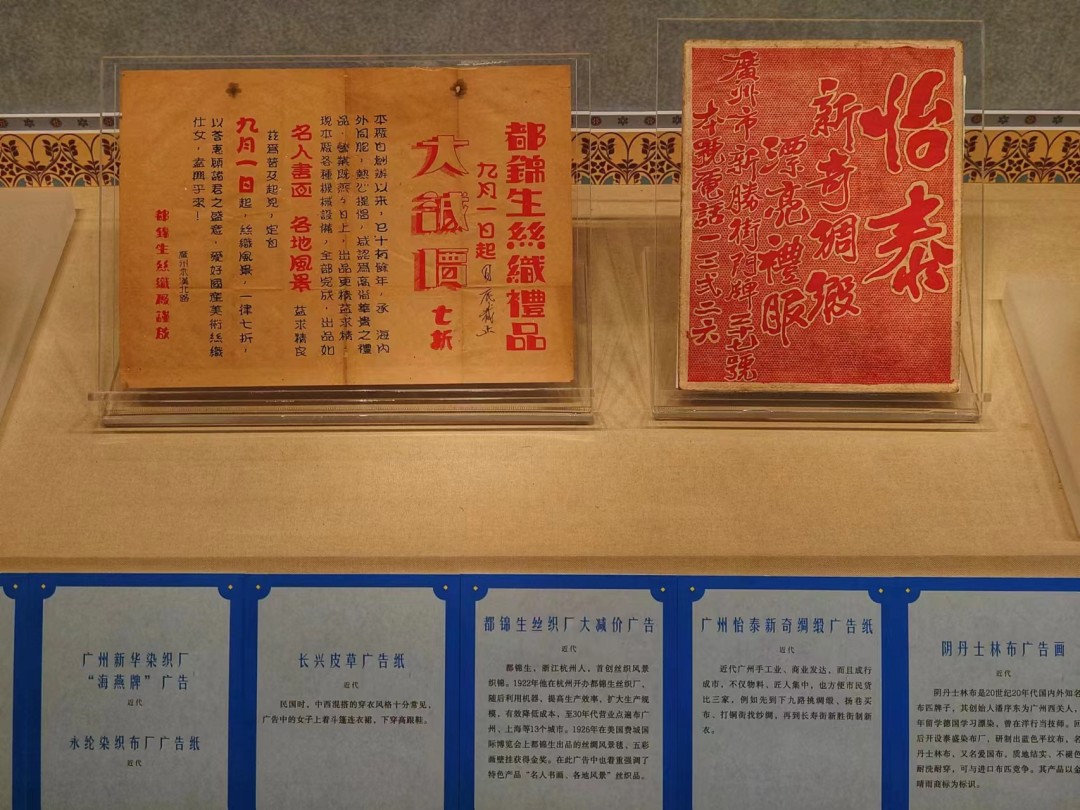 都錦生絲織禮品
九月一日起
月底截止
大減價
七折
本廠自創辦以來，已十有餘年，承 海內
外同胞，熱心提倡，咸認爲高尚華貴之禮
品，營業旣蒸々日上，出品更精益求精，
現本廠各種機械設備，全部完成，出品如
名人書画 各地風景 益求精良
茲爲普及起見，定自
九月一日起，絲織風景，一律七折，
以答惠顧諸君之盛意，愛好國產美術絲織
仕女，盍興乎來！
廣州永漢北路
都錦生絲織廠謹啟
怡泰
新奇綢緞
漂亮禮服
廣州市新勝街門牌三十七號
本號電話一三弍二六
广州新华染织厂
“海燕牌”广告
近代
永纶染织布厂广告纸
近代
长兴皮草广告纸
近代
民国时，中西混搭的穿衣风格十分常见。
广告中的女子上着斗篷连衣裙，下穿高跟鞋。
都锦生丝织厂大减价广告
近代
都锦生，浙江杭州人，首创丝织风景
织锦。1922年他在杭州开办都锦生丝织厂，
随后利用机器，提高生产效率，扩大生产规
模，有效降低成本，至30年代营业点遍布广
州、上海等13个城市。1926年在美国费城国
际博览会上都锦生出品的丝绸风景毯、五彩
画壁挂获得金奖。在此广告中也着重强调了
特色产品“名人书画、各地风景”丝织品。
广州怡泰新奇绸缎广告纸
近代
近代广州手工业、商业发达，而且成行
成市，不仅物料、匠人集中，也方便市民货
比三家，例如先到下九路挑绸缎、杨巷买
布、打铜街找纱绸，再到长寿街新胜街制新
衣。
阴丹士林布广告画
近代
阴丹士林布是20世纪20年代国内外知名
布匹牌子，其创始人潘序东为广州西关人，
年留学德国学习漂染，曾在洋行当技师。回
后开设泰盛染布厂，研制出蓝色平纹布，名
丹士林布，又名爱国布，质地结实、不褪色
耐洗耐穿，可与进口布匹竞争。其产品以金
晴雨商标为标识。